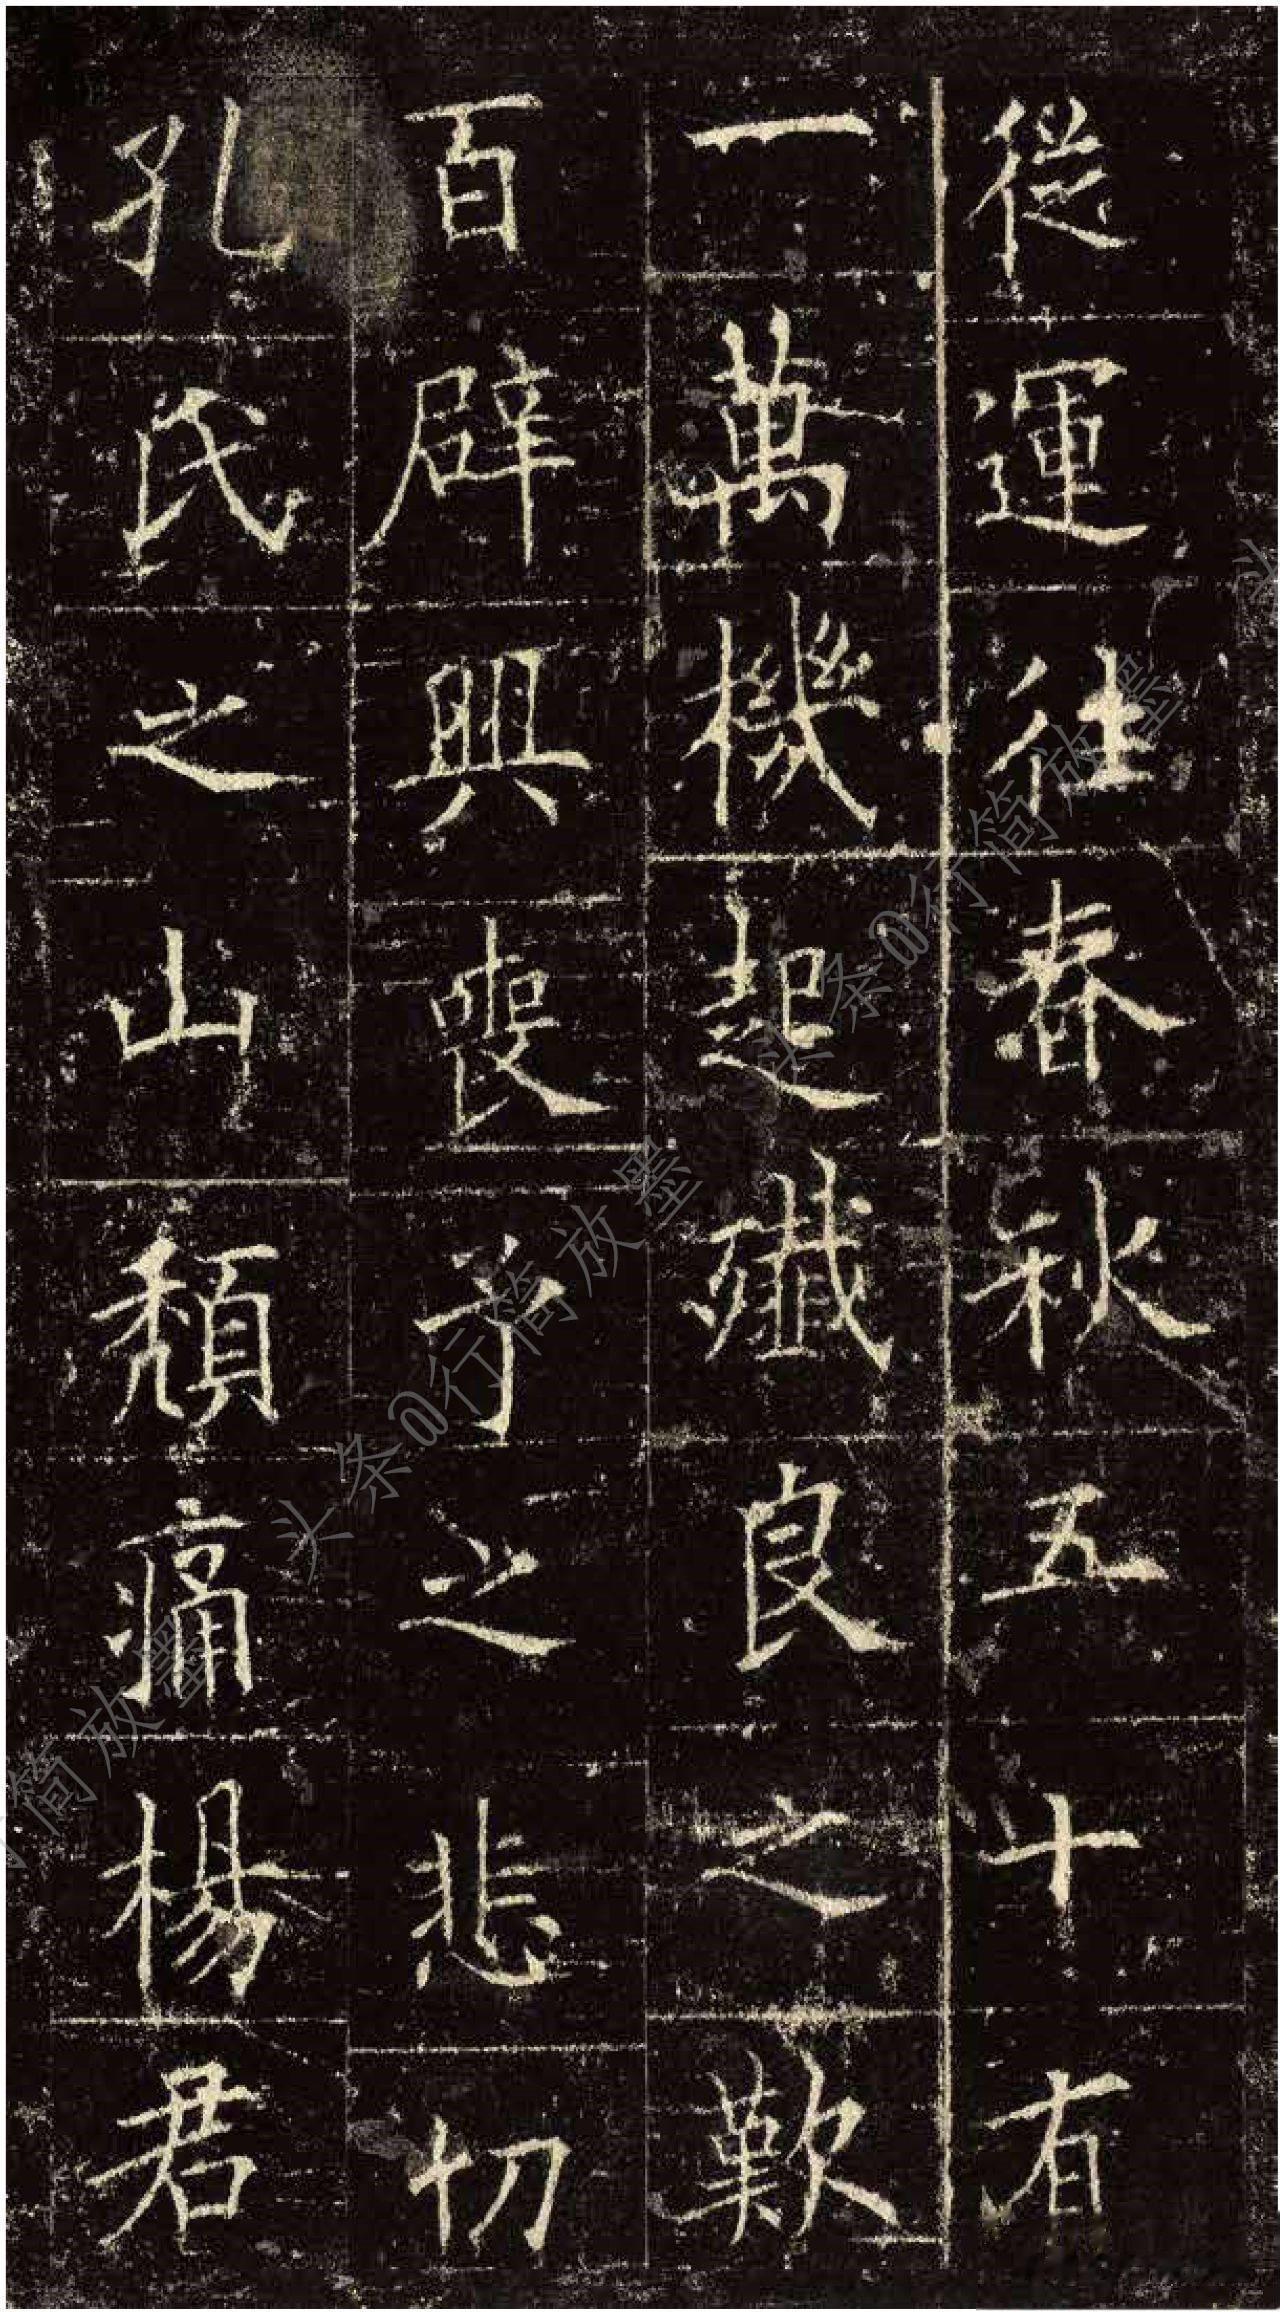 從運往春秋五十有
一萬機起殲良之歎
百辟興喪予之悲切
孔氏之山頹痛楊君
头条@行简放墨
头条@行简放墨